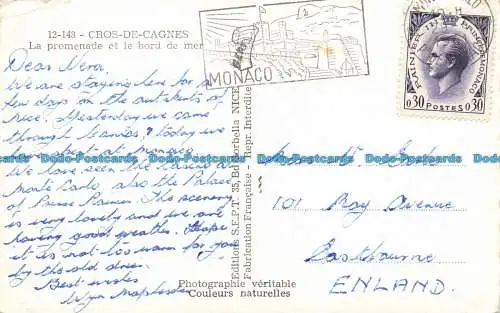 12-148 - CROS-DE-CAGNES
La promenade et le bord de mer
MONACO
RAINIER III PRINCE DE MONACO
0,30 POSTES 0,30
Dear Vera.
We are staying here for a
few days on the outskirts of
Nice. Yesterday we came
through Cannes & today we
have spent at Monaco
We have seen the
Monte Carlo, also the Palace
of Prince Rainier. The scenery
is very lovely and we are
having good weather. Hope
it is not too warm for you
by the old
Best wishes
Wyn
Editions S.E.P.T. 35, Bd NICE
Fabrication Française - Repr. Interdite
101
Bay Avenue
Eastbourne
ENLAND.
Photographie véritable
Couleurs naturelles
Dodo-Postcards Dodo-Postcards Dodo-Postcards Dodo-Postcards